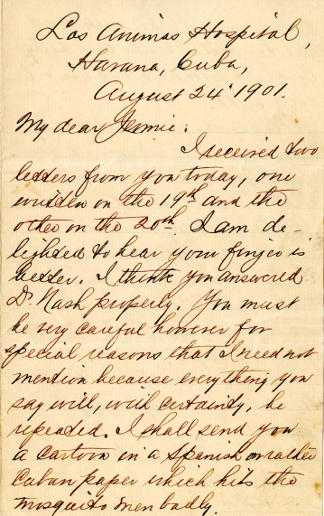 Las Animas Hospital,
Havana, Cuba,
August 24' 1901.
My dear Jennie:
I received two
letters from you today, one
written on the 19th and the
other on the 20th. I am de-
lighted to hear your finger is
better. I think you answered
Dr Nash properly. You must
be very careful however for
special reasons that I need not
mention because everything you
say will, with certainty, be
repeated. I shall send you
a cartoon in a Spanish or rather
Cuban paper which hits the
mosquito men badly.